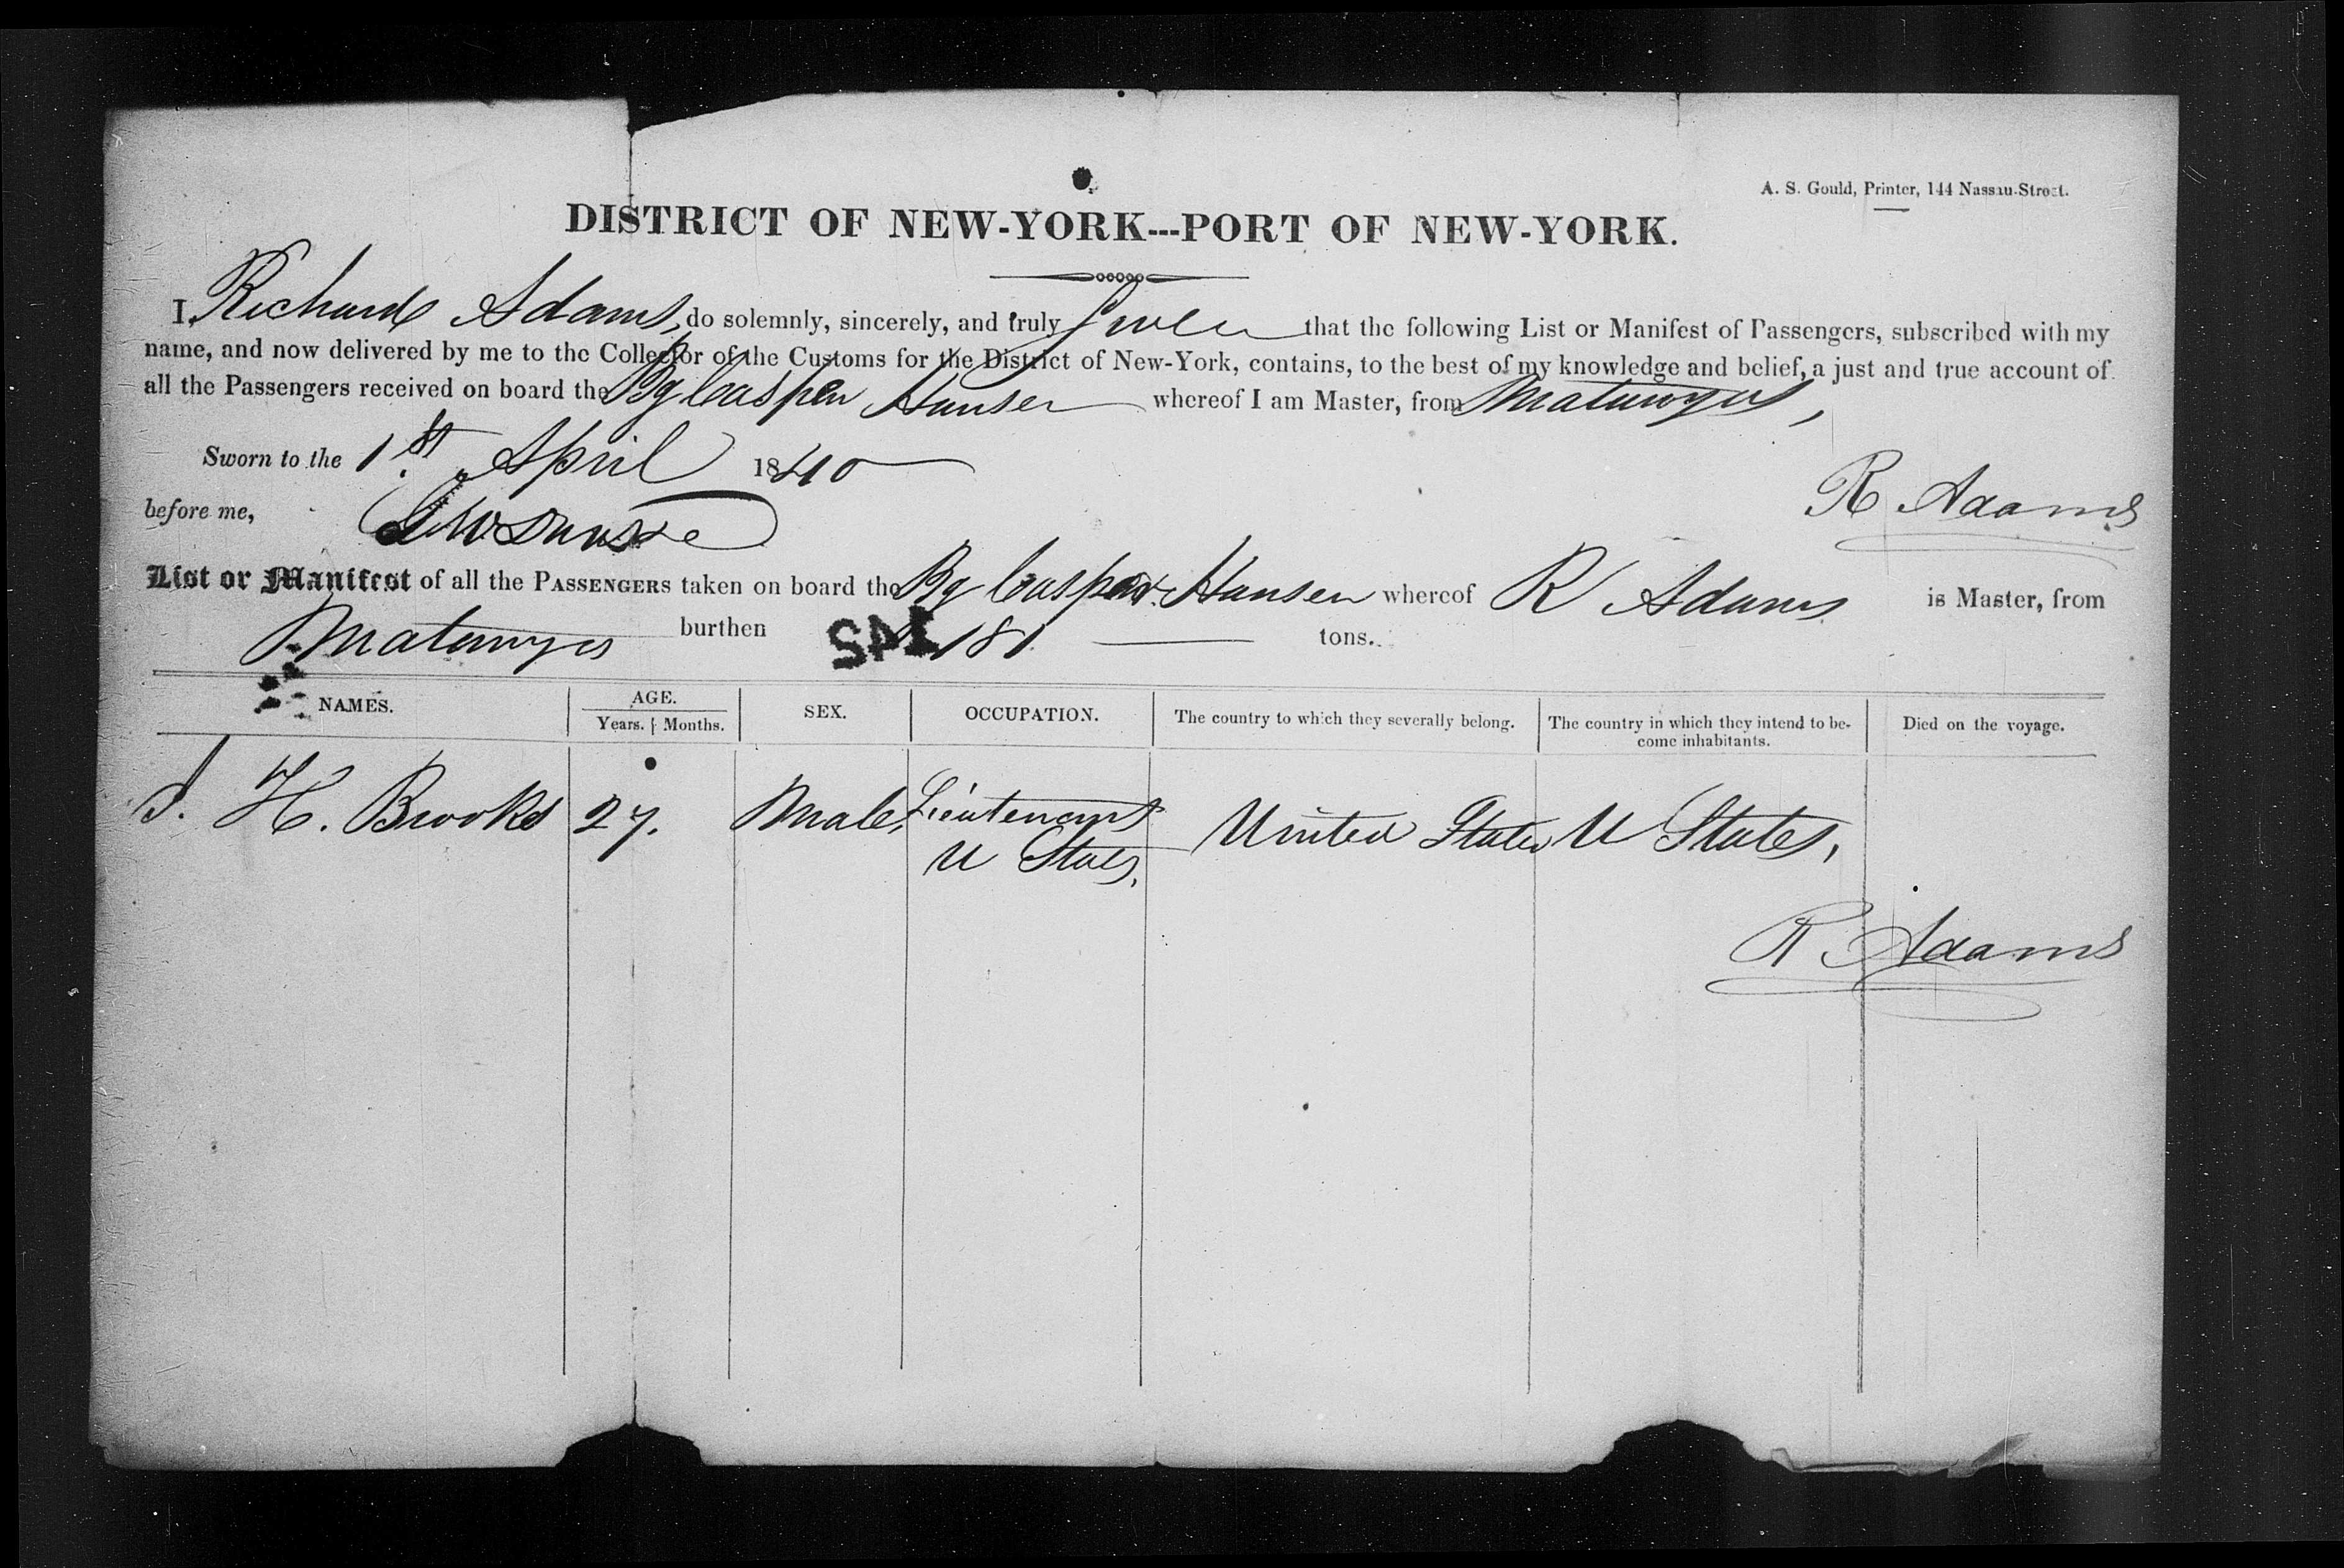 A. S. Gould, Printer, 144 Nassau-Street.
DISTRICT OF NEW-YORK---PORT OF NEW-YORK.
I, Richard Adams, do solemnly, sincerely, and truly Swear that the following List or Manifest of Passengers, subscribed with my
name, and now delivered by me to the Collector of the Customs for the District of New-York, contains, to the best of my knowledge and belief, a just and true account of
all the Passengers received on board the Bg Casper Hauser whereof I am Master, from Matanzas,
Sworn to the 1st April 1840
R Adams
before me,
List or Manifest of all the PASSENGERS taken on board the Bg Casper Hansen whereof R Adams is Master, from
Matanzas burthen 181 tons.
NAMES. AGE. Years. Months. SEX. OCCUPATION. The country to which they severally belong. The country in which they intend to be-
come inhabitants. Died on the voyage.
H. Brooks 27. Male, Lieutenant United States U States,
U Staes,
R Adams